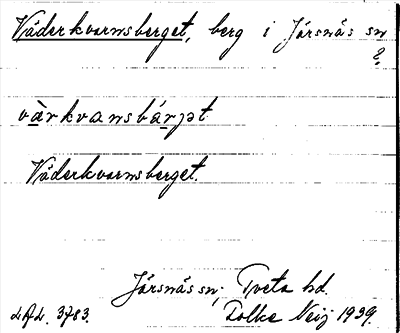 Väderkvarnsberget, berg i Järsnäs sn
?
värkvansbárjət
Väderkvarnsberget.
Järsnäs sn, Tveta hd.
LAL. 3783. Folke Neij 1939.